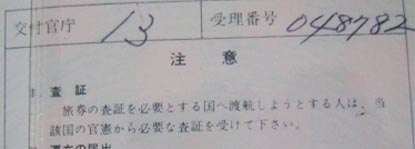 交付官庁 13 受理番号 048782
注意
1. 査証
旅券の査証を必要とする国へ渡航しようとする人は、当
該国の官憲から必要な査証を受けて下さい。